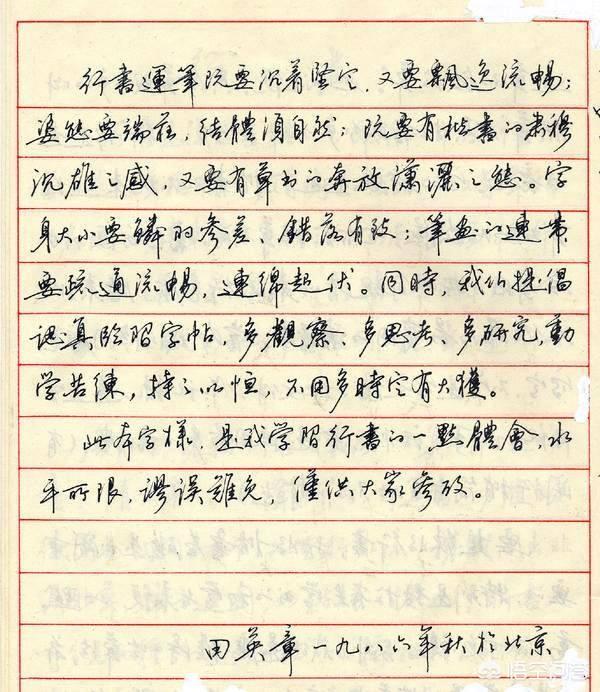 行書運筆既要沉着堅定,又要飄逸流暢;
姿態要端莊,結體須自然;既要有楷書的肅穆
沉雄之感,又要有草书的奔放瀟灑之態。字
身大小要鱗羽參差、錯落有致;筆画的連帶
要疏通流暢,連綿起伏。同時,我们提倡
認真臨習字帖,多觀察、多思考、多研究,勤
學苦練,持之以恒,不用多時定有大獲。
此本字樣,是我學習行書的一點體會,水
平所限,謬誤難免,僅供大家參攷。
田英章一九八六年秋於北京
悟空问答